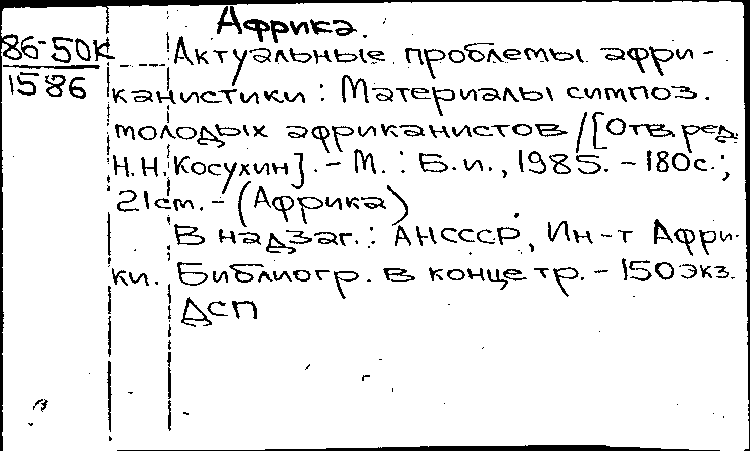 Африка.
86-50К
1586
Актуальные проблемы афри-
канистики : Материалы симпоз.
молодых африканистов / [Отв. ред.
Н.Н. Косухин]. - М. : Б.и., 1985. - 180с. ;
21см. - (Африка)
В надзаг. : АНСССР, Ин-т Афри-
ки. Библиогр. в конце тр. - 150 экз.
ДСП